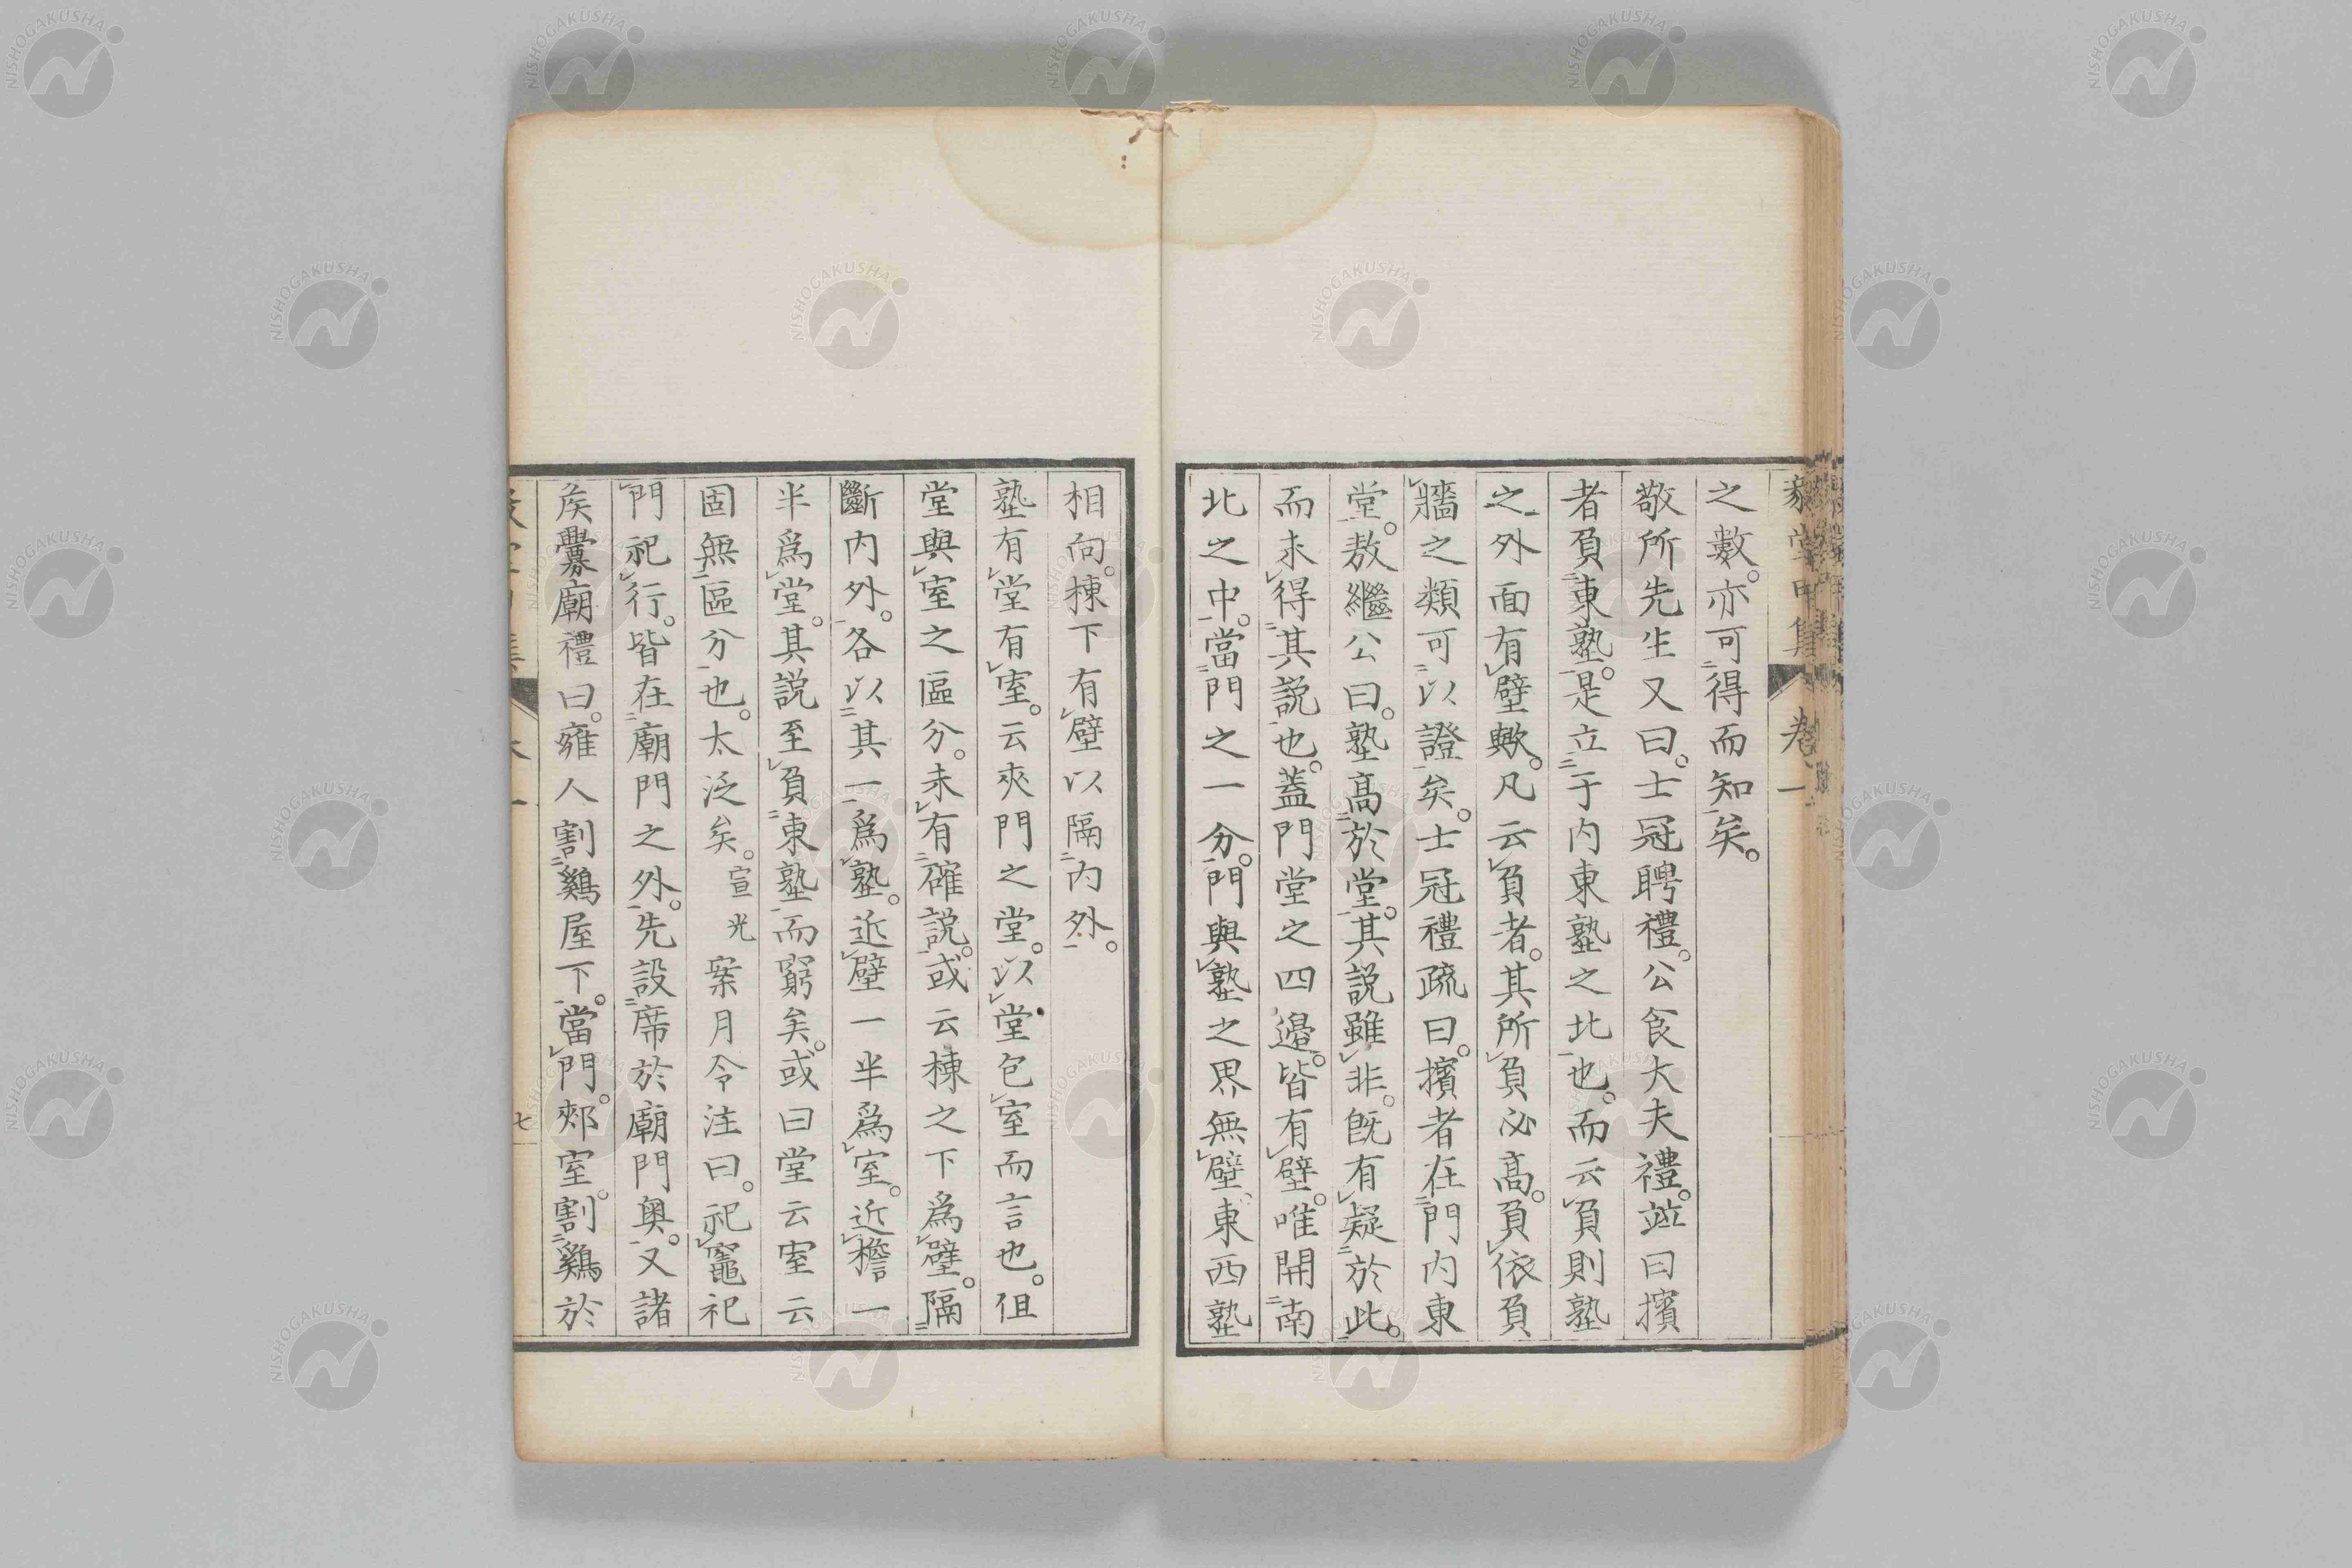 之數。亦可得而知矣。
敬所先生又曰。士冠聘禮。公食大夫禮。竝曰擯
者負東塾。是立于内東塾之北也。而云負則塾
之外面有壁歟。凡云負者。其所負必高。負依負
牆之類可以證矣。士冠禮疏曰。擯者在門内東
堂。敖繼公曰。塾高於堂。其說雖非。既有疑於此。
而未得其說也。蓋門堂之四邉。皆有壁。唯開南
北之中。當門之一分。門與塾之界無壁東西塾
相向。棟下有壁以隔内外。
塾有堂有室。云夾門之堂。以堂包室而言也。但
堂與室之區分。未有確說。或云棟之下爲壁。隔
斷内外。各以其一爲塾。近壁一半爲室。近檐一
半爲堂。其說至負東塾而窮矣。或曰堂云室云
固無區分也。太泛矣。宣光案月令注曰。祀竈祀
門祀行。皆在廟門之外。先設席於廟門奥。又諸
矦釁廟禮曰。雍人割鷄屋下。當門。郟室。割鷄於
卷一
七
NISHOGAKUSHA